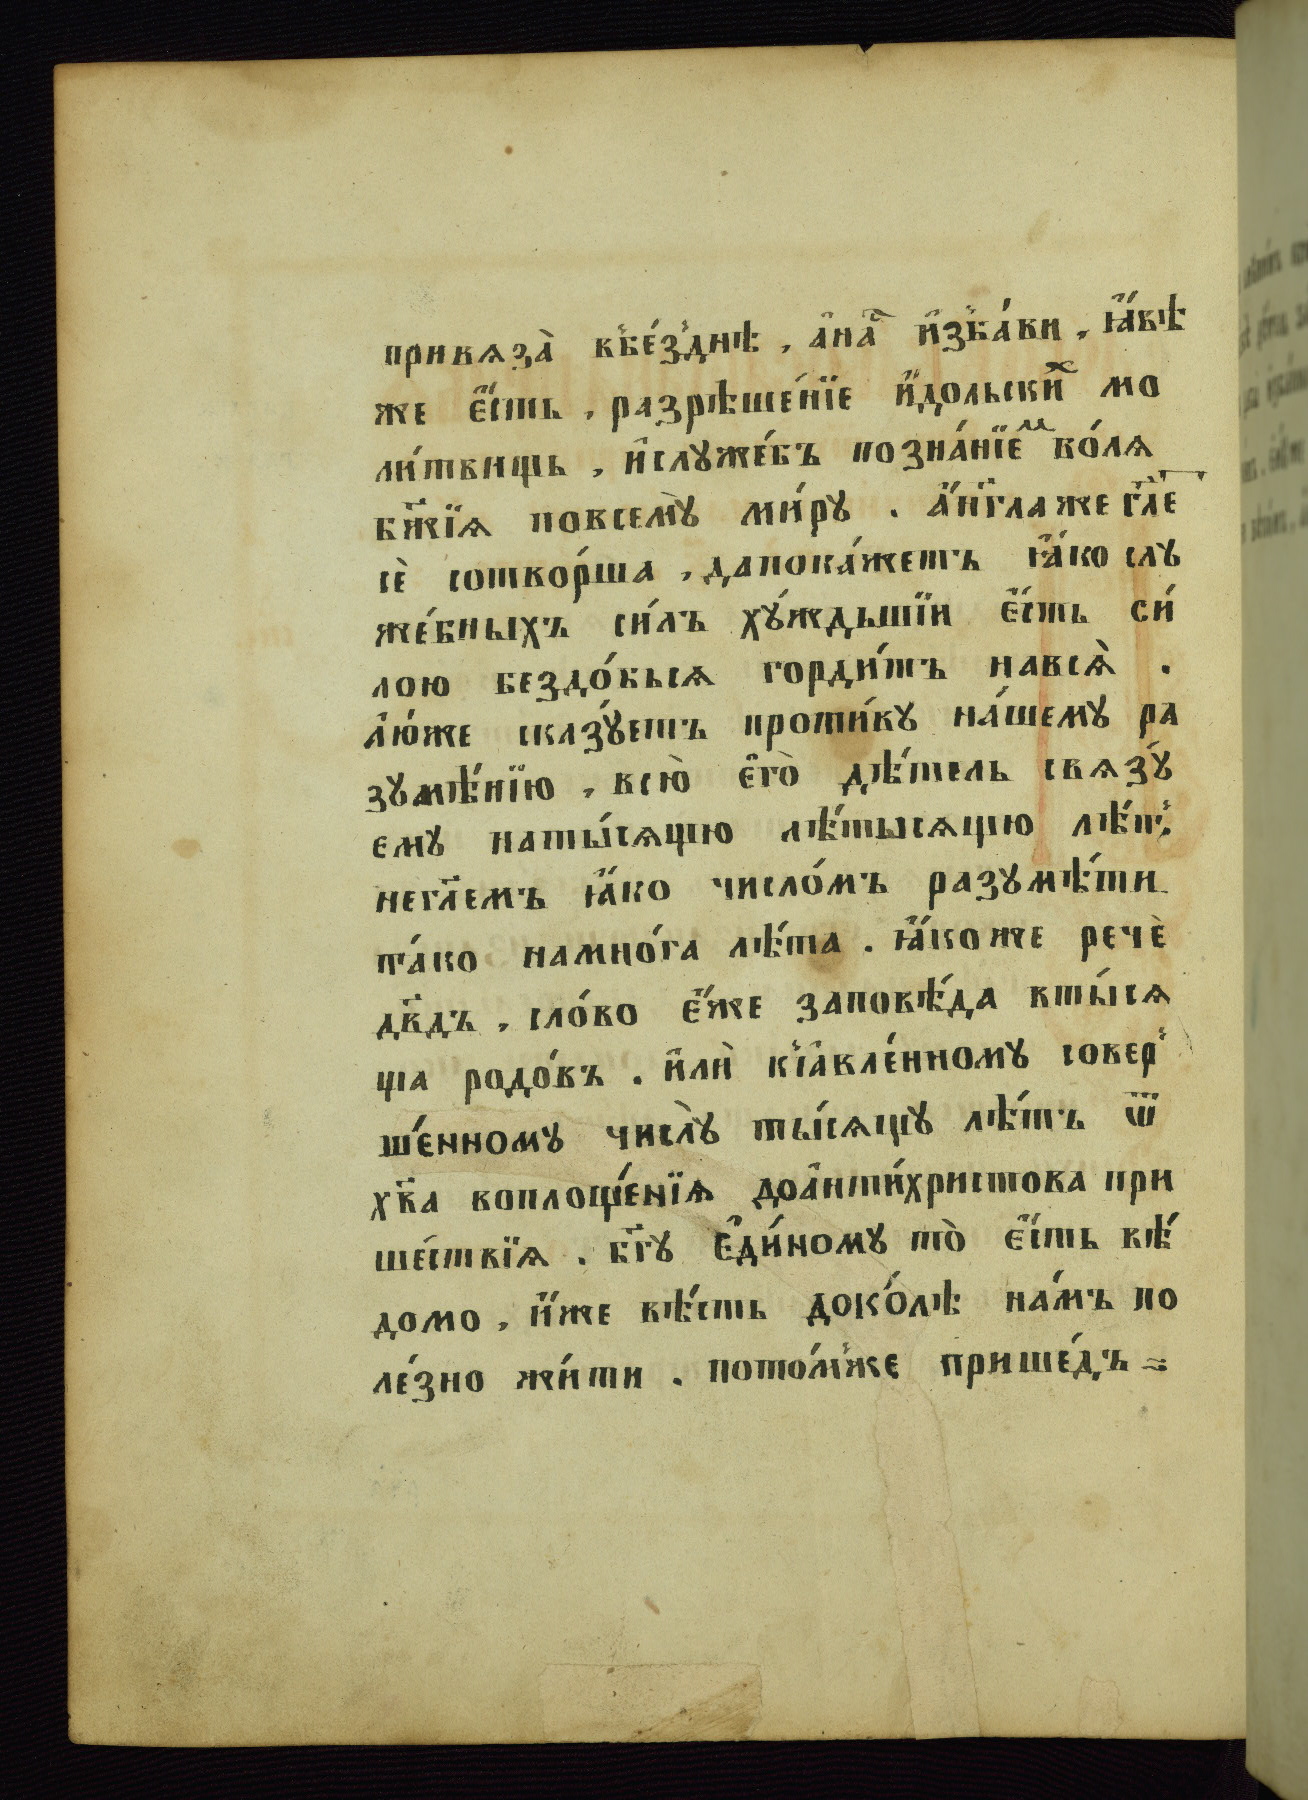 привѧза̀ вбе́зднѣ , а҆на́с и҆зба́ви , ꙗ҆́вѣ
же є҆́сть , разрѣше́нїе и҆́дольскиⷯ мо
ли́твищь , и҆служе́бъ позна́нїеⷨ во́лѧ
бж҃їѧ повсемꙋ̀ ми́рꙋ . а҆́нг҃ла же гл҃е
сѐ сотво́рша , дапока́жетъ ꙗ҆́ко слꙋ
же́бныхъ си́лъ хꙋ́ждьшїи є҆́сть си́
лою бездо́бьсѧ горди́тъ навсѧ̀ .
а҆ю҆́же сказꙋ́етъ проти́вꙋ на́шемꙋ ра
зꙋмѣ́нїю , всю̀ є҆го̀ дѣ́тель свѧзꙋ́
емꙋ наты́сѧщю лѣ́тысѧщю лѣ́т ,
негл҃емъ ꙗ҆́ко число́мъ разꙋмѣ́ти
та́ко намно́га лѣ́та . ꙗ҆́коже речѐ
дв҃дъ , сло́во є҆́же заповѣ́да вты́сѧ
ща родо́въ . и҆лѝ вꙗ҆вле́нномꙋ совер
ше́нномꙋ числꙋ̀ ты́сѧщꙋ лѣ́тъ ѿ
хв҃а воплоще́нїѧ доа҆нти́христова при
ше́ствїѧ . бг҃ꙋ є҆ди́номꙋ то̀ є҆́сть вѣ́
домо , и҆́же вѣ́сть доко́лѣ на́мъ по
ле́зно жи́ти . пото́мже прише́дъ =